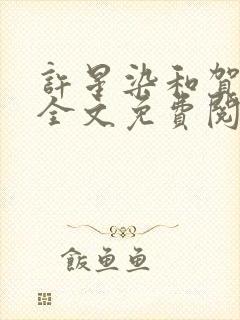 許星染和賀
全文免費閱
飯魚魚